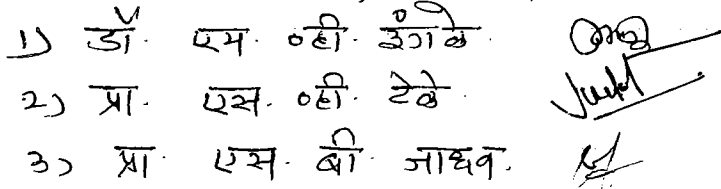 1) डॉ. एम. व्ही. इंगळे
2) प्रा. एस. व्ही. टेळे
3) प्रा. एस. बी. जाधव.